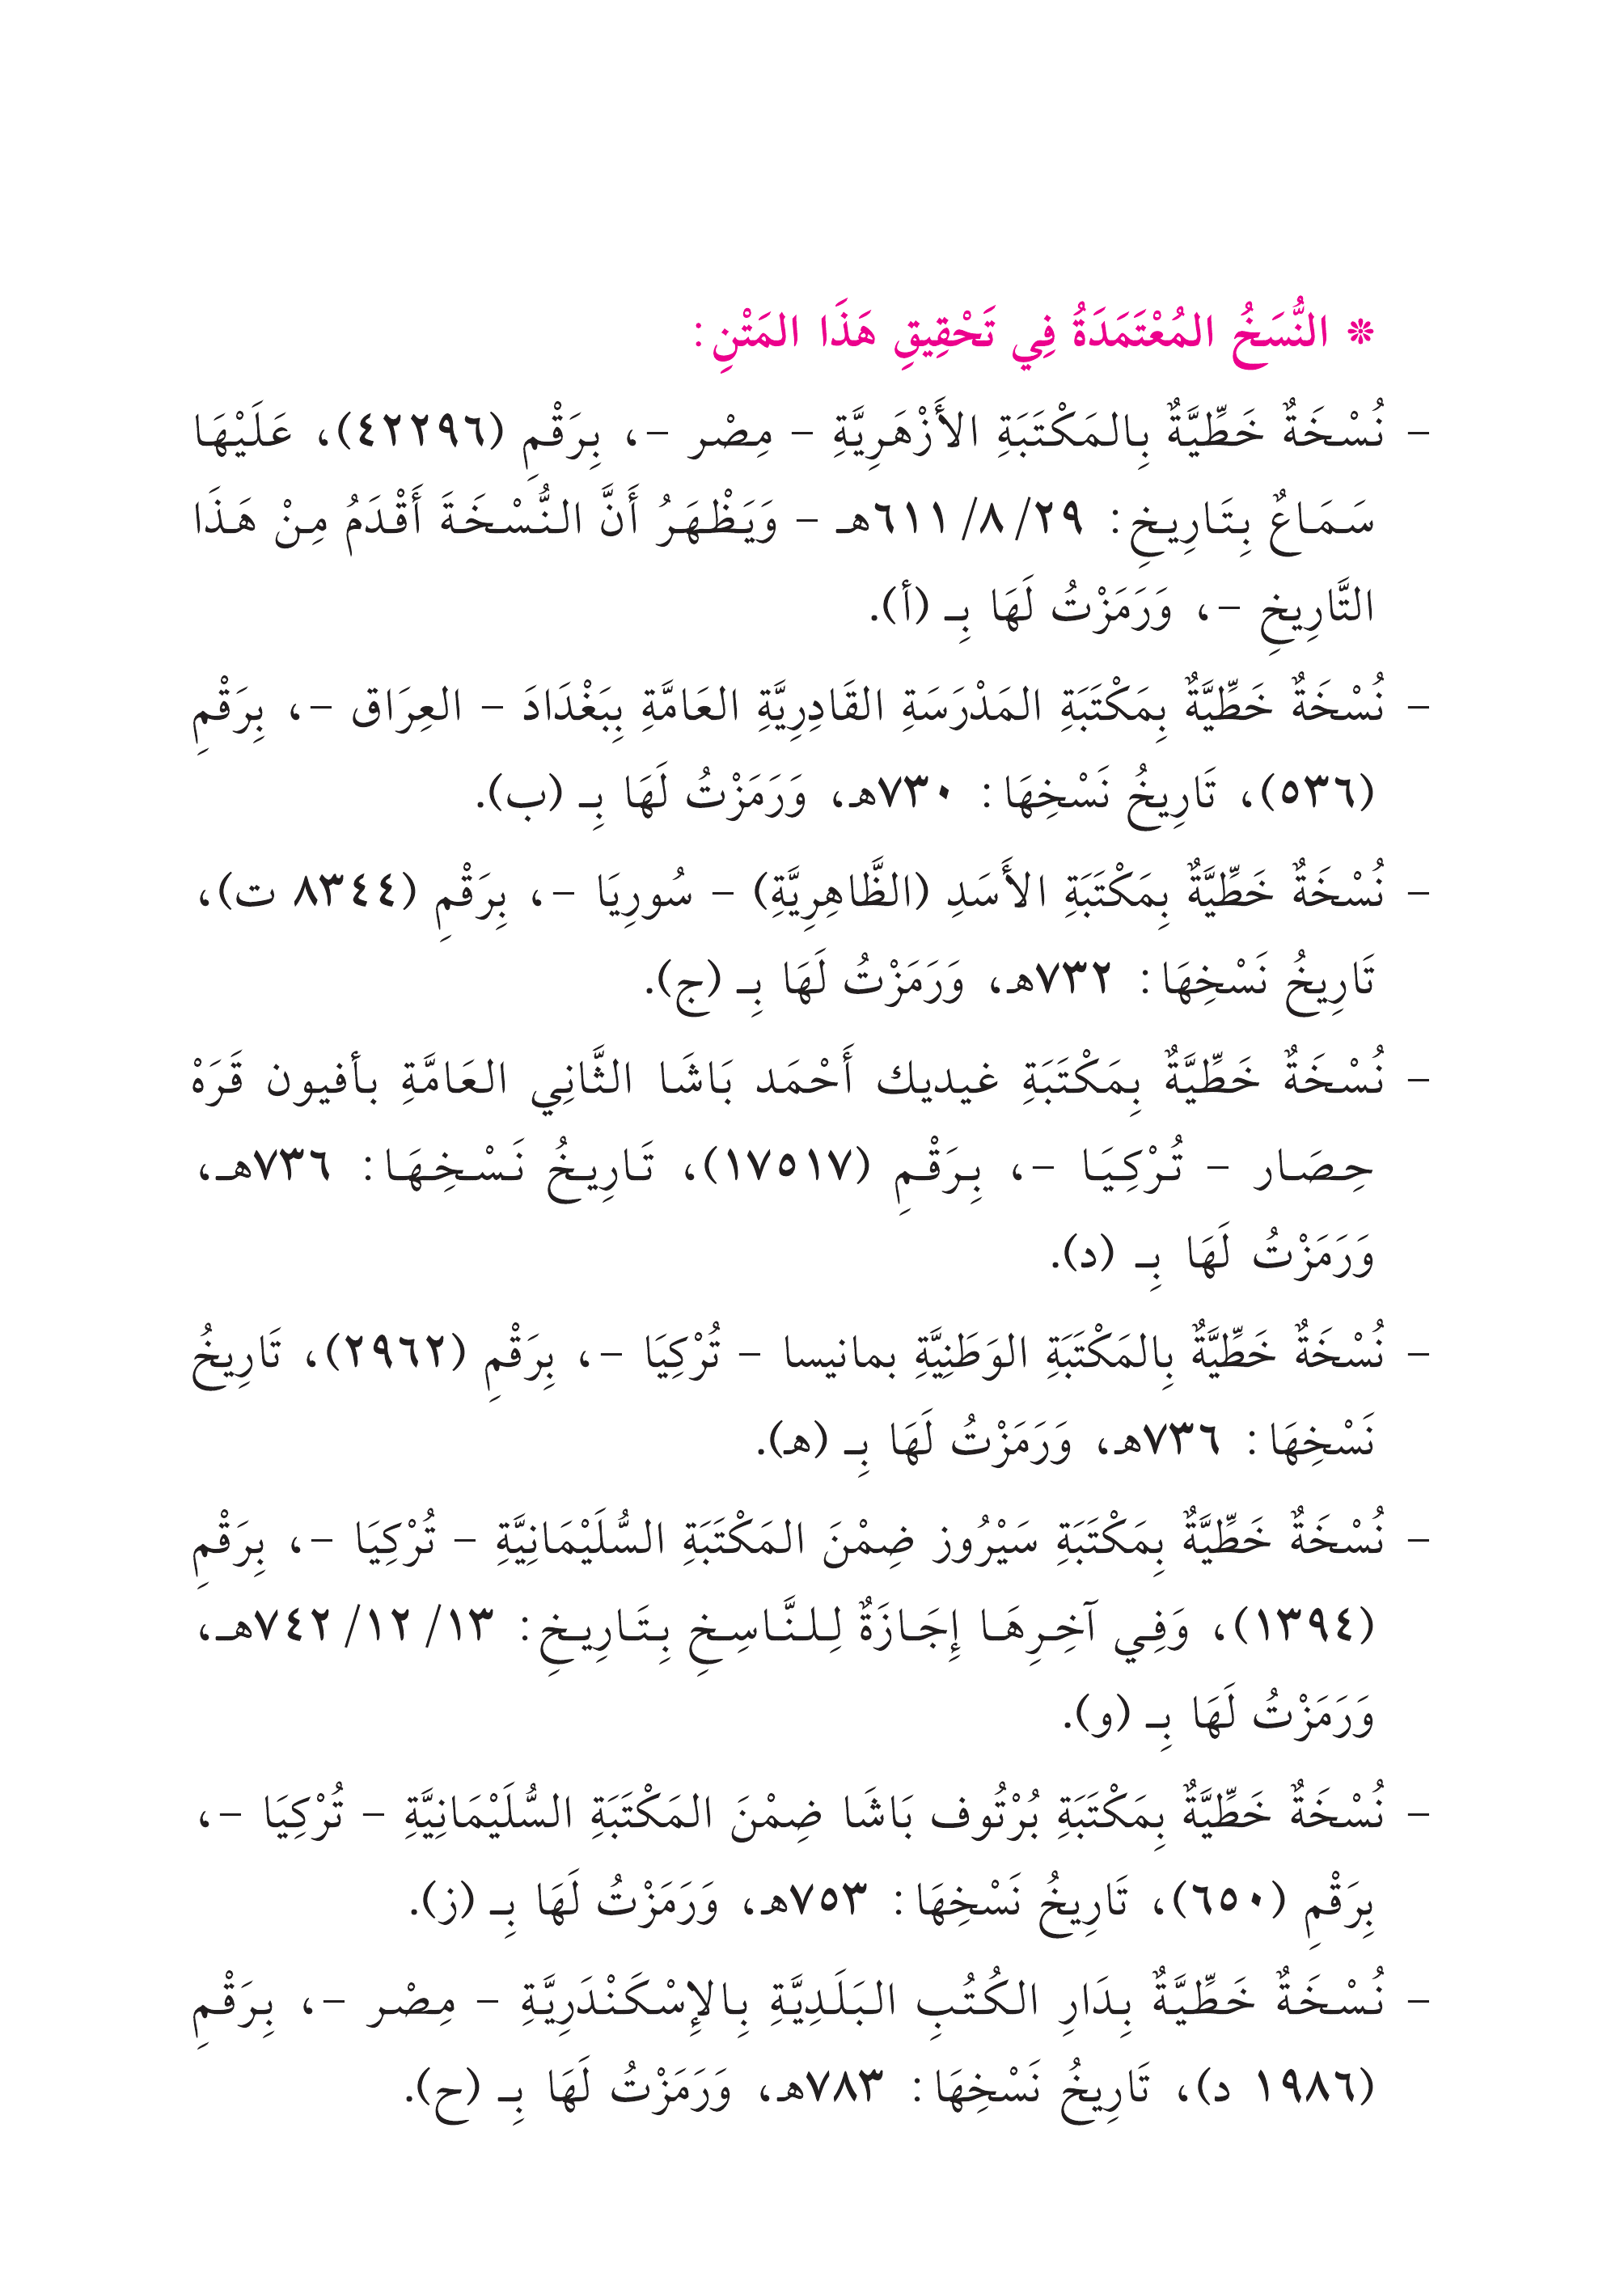 * النُّسَخُ المُعْتَمَدَةُ فِي تَحْقِيقِ هَذَا المَتْنِ:
- نُسْخَةٌ خَطِّيَّةٌ بِالمَكْتَبَةِ الأَزْهَرِيَّةِ - مِصْر -، بِرَقْمِ (٤٢٢٩٦)، عَلَيْهَا
سَمَاعٌ بِتَارِيخِ: ٢٩/ ٨/ ٦١١هـ - وَيَظْهَرُ أَنَّ النُّسْخَةَ أَقْدَمُ مِنْ هَذَا
التَّارِيخِ -، وَرَمَزْتُ لَهَا بِـ (أ).
- نُسْخَةٌ خَطِّيَّةٌ بِمَكْتَبَةِ المَدْرَسَةِ القَادِرِيَّةِ العَامَّةِ بِبَغْدَادَ - العِرَاق -، بِرَقْمِ
(٥٣٦)، تَارِيخُ نَسْخِهَا: ٧٣٠هـ، وَرَمَزْتُ لَهَا بِـ (ب).
- نُسْخَةٌ خَطِّيَّةٌ بِمَكْتَبَةِ الأَسَدِ (الظَّاهِرِيَّةِ) - سُورِيَا -، بِرَقْمِ (٨٣٤٤ ت)،
تَارِيخُ نَسْخِهَا: ٧٣٢هـ، وَرَمَزْتُ لَهَا بِـ (ج).
- نُسْخَةٌ خَطِّيَّةٌ بِمَكْتَبَةِ غيديك أَحْمَد بَاشَا الثَّانِي العَامَّةِ بأفيون قَرَهْ
حِصَار - تُرْكِيَا -، بِرَقْمِ (١٧٥١٧)، تَارِيخُ نَسْخِهَا: ٧٣٦هـ،
وَرَمَزْتُ لَهَا بِـ (د).
- نُسْخَةٌ خَطِّيَّةٌ بِالمَكْتَبَةِ الوَطَنِيَّةِ بمانيسا - تُرْكِيَا -، بِرَقْمِ (٢٩٦٢)، تَارِيخُ
نَسْخِهَا: ٧٣٦هـ، وَرَمَزْتُ لَهَا بِـ (هـ).
- نُسْخَةٌ خَطِّيَّةٌ بِمَكْتَبَةِ سَيْرُوز ضِمْنَ المَكْتَبَةِ السُّلَيْمَانِيَّةِ - تُرْكِيَا -، بِرَقْمِ
(١٣٩٤)، وَفِي آخِرِهَا إِجَازَةٌ لِلنَّاسِخِ بِتَارِيخِ: ١٣/ ١٢/ ٧٤٢هـ،
وَرَمَزْتُ لَهَا بِـ (و).
- نُسْخَةٌ خَطِّيَّةٌ بِمَكْتَبَةِ بُرْتُوف بَاشَا ضِمْنَ المَكْتَبَةِ السُّلَيْمَانِيَّةِ - تُرْكِيَا -،
بِرَقْمِ (٦٥٠)، تَارِيخُ نَسْخِهَا: ٧٥٣هـ، وَرَمَزْتُ لَهَا بِـ (ز).
- نُسْخَةٌ خَطِّيَّةٌ بِدَارِ الكُتُبِ البَلَدِيَّةِ بِالإِسْكَنْدَرِيَّةِ - مِصْر -، بِرَقْمِ
(١٩٨٦ د)، تَارِيخُ نَسْخِهَا: ٧٨٣هـ، وَرَمَزْتُ لَهَا بِـ (ح).